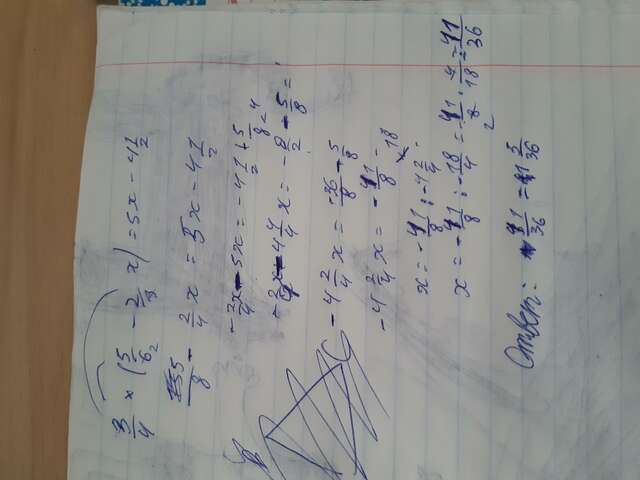 3/4 × (5/6 - 2/3 x) = 5x - 4 1/2
5/8 - 2/4 x = 5x - 4 1/2
- 2/4 x - 5x = - 4 1/2 + 5/8
- 4 2/4 x = - 36/8 - 5/8
- 4 2/4 x = - 41/8
x = - 41/8 : - 4 2/4
x = - 41/8 : - 18/4 = 41/8 · 4/18 = 41/36
Ответ: 41/36 = 1 5/36